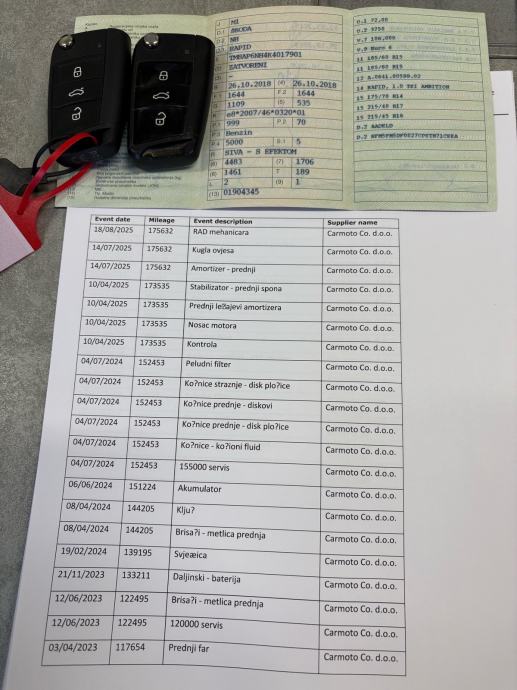 J M1
D.1 ŠKODA
D.2 NH
D.3 RAPID
TMBAP6NH4K4017901
ZATVORENI
26.10.2018 (4) 26.10.2018
1644 F.2 1644
G 1109 (5) 535
K e8*2007/46*0320*01
999 P.2 70
P.3 Benzin
P.4 5000 S.1 5
R SIVA - S EFEKTOM
(6) 4483 (7) 1706
(8) 1461 T 189
L 2 (9) 1
(13) 01904345
U.1 72,00
U.2 3750
V.7 106,000
V.9 Euro 6
11 185/60 R15
11 185/60 R15
14 RAPID, 1.0 TSI AMBITION
15 175/70 R14
15 215/40 R17
15 215/45 R16
Event date Mileage Event description Supplier name
18/08/2025 175632 RAD mehanicara Carmoto Co. d.o.o.
14/07/2025 175632 Kugla ovjesa Carmoto Co. d.o.o.
14/07/2025 175632 Amortizer - prednji Carmoto Co. d.o.o.
10/04/2025 173535 Stabilizator - prednji spona Carmoto Co. d.o.o.
10/04/2025 173535 Prednji le?ajevi amortizera Carmoto Co. d.o.o.
10/04/2025 173535 Nosac motora Carmoto Co. d.o.o.
10/04/2025 173535 Kontrola Carmoto Co. d.o.o.
04/07/2024 152453 Peludni filter Carmoto Co. d.o.o.
04/07/2024 152453 Ko?nice straznje - disk plo?ice Carmoto Co. d.o.o.
04/07/2024 152453 Ko?nice prednje - diskovi Carmoto Co. d.o.o.
04/07/2024 152453 Ko?nice prednje - disk plo?ice Carmoto Co. d.o.o.
04/07/2024 152453 Ko?nice - ko?ioni fluid Carmoto Co. d.o.o.
04/07/2024 152453 155000 servis Carmoto Co. d.o.o.
06/06/2024 151224 Akumulator Carmoto Co. d.o.o.
08/04/2024 144205 Klju? Carmoto Co. d.o.o.
08/04/2024 144205 Brisa?i - metlica prednja Carmoto Co. d.o.o.
19/02/2024 139195 Svjeæica Carmoto Co. d.o.o.
21/11/2023 133211 Daljinski - baterija Carmoto Co. d.o.o.
12/06/2023 122495 Brisa?i - metlica prednja Carmoto Co. d.o.o.
12/06/2023 122495 120000 servis Carmoto Co. d.o.o.
03/04/2023 117654 Prednji far Carmoto Co. d.o.o.